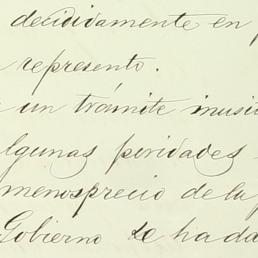 decididamente en
represento.
un trámite inusi
lgunas poridades
menosprecio de la
Gobierno se ha da